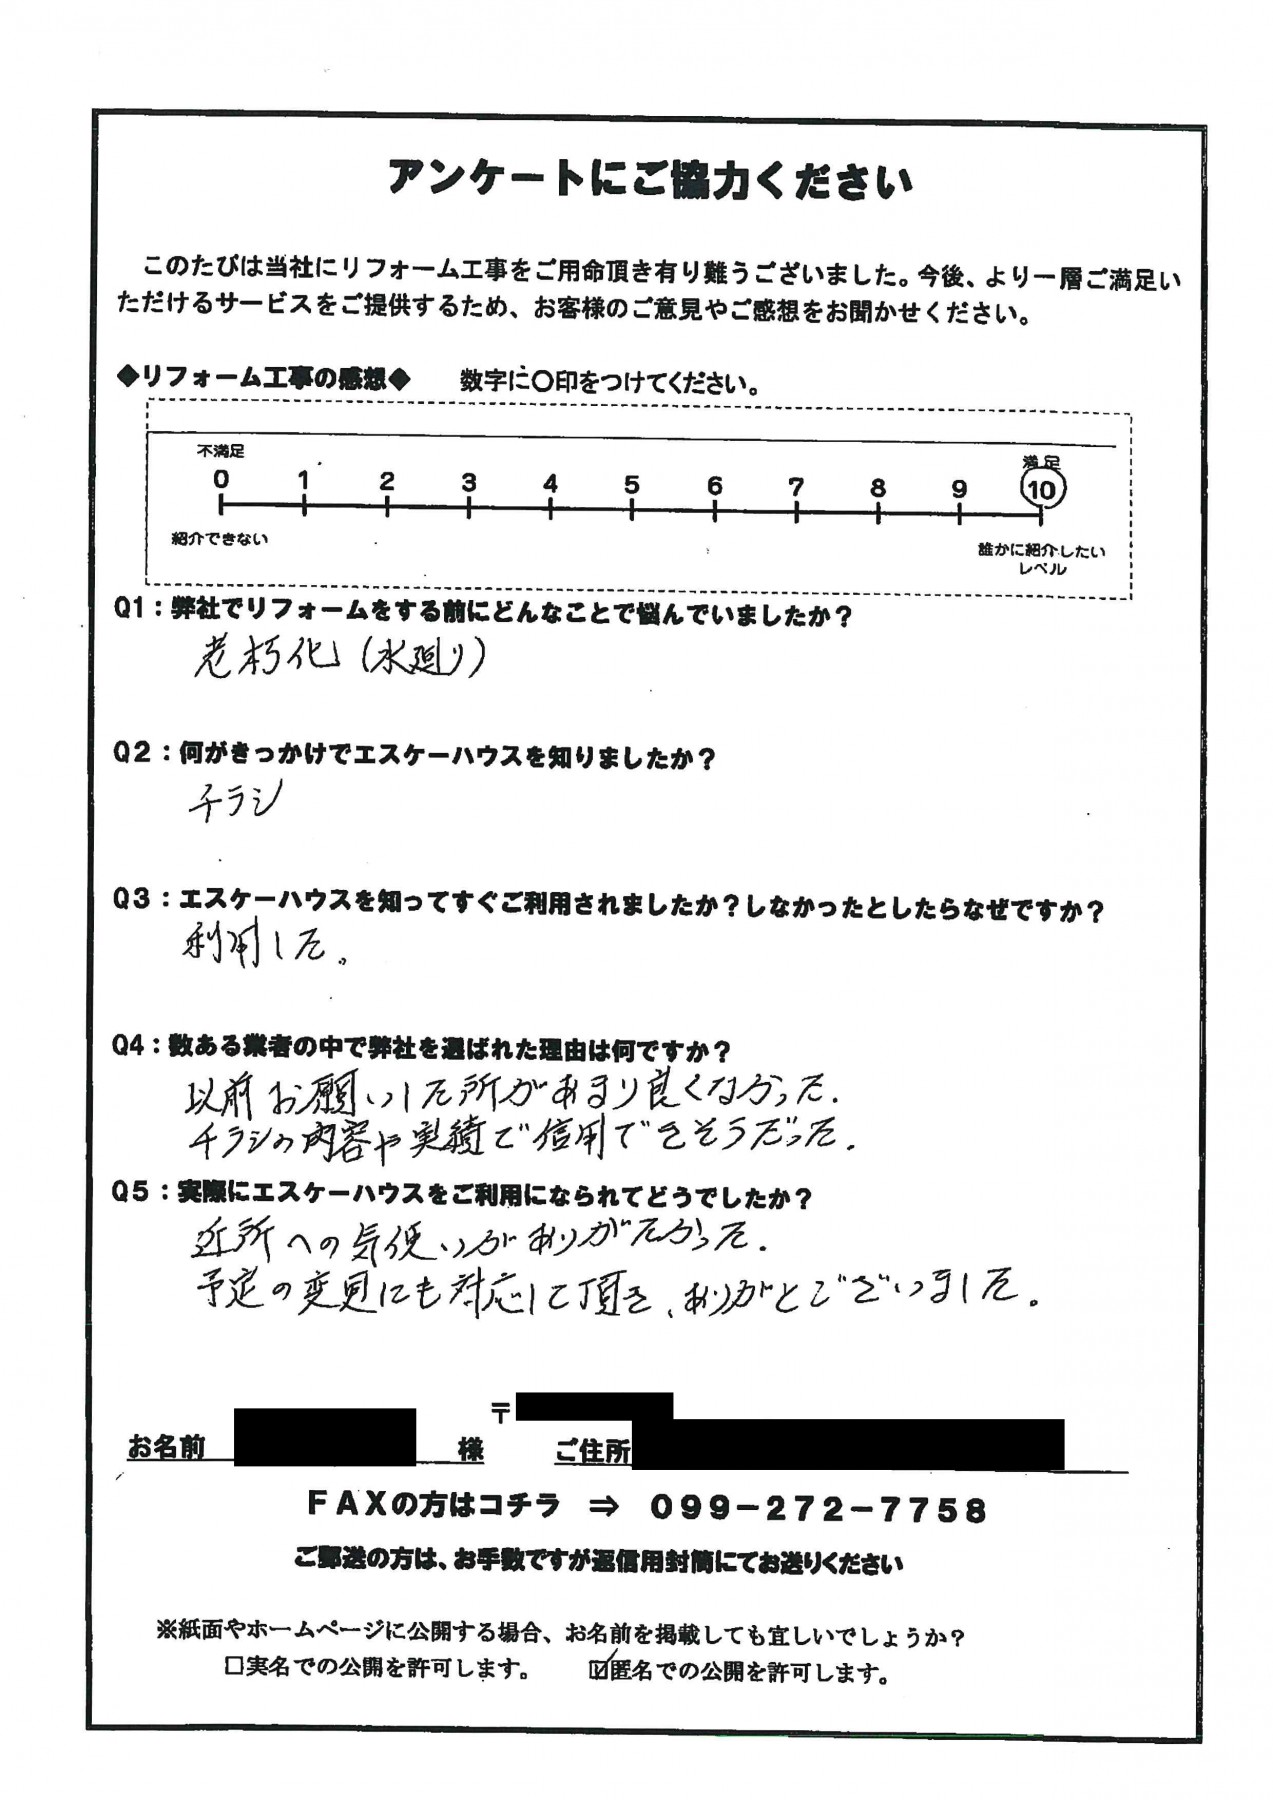 アンケートにご協力ください
このたびは当社にリフォーム工事をご用命頂き有り難うございました。今後、より一層ご満足い
ただけるサービスをご提供するため、お客様のご意見やご感想をお聞かせください。
◆リフォーム工事の感想◆ 数字に〇印をつけてください。
不満足 満足
0 1 2 3 4 5 6 7 8 9 10
紹介できない 誰かに紹介したい
レベル
Q1：弊社でリフォームをする前にどんなことで悩んでいましたか？
老朽化（水廻り）
Q2：何がきっかけでエスケーハウスを知りましたか？
チラシ
Q3：エスケーハウスを知ってすぐご利用されましたか？しなかったとしたらなぜですか？
利用した。
Q4：数ある業者の中で弊社を選ばれた理由は何ですか？
以前お願いした所があまり良くなかった.
チラシの内容や実績で信用できそうだった.
Q5：実際にエスケーハウスをご利用になられてどうでしたか？
近所への気使いがありがたかった.
予定の変更にも対応して頂き、ありがとございました。
〒
お名前 様 ご住所
ＦＡＸの方はコチラ ⇒ ０９９－２７２－７７５８
ご郵送の方は、お手数ですが返信用封筒にてお送りください
※紙面やホームページに公開する場合、お名前を掲載しても宜しいでしょうか？
□実名での公開を許可します。 ☑匿名での公開を許可します。